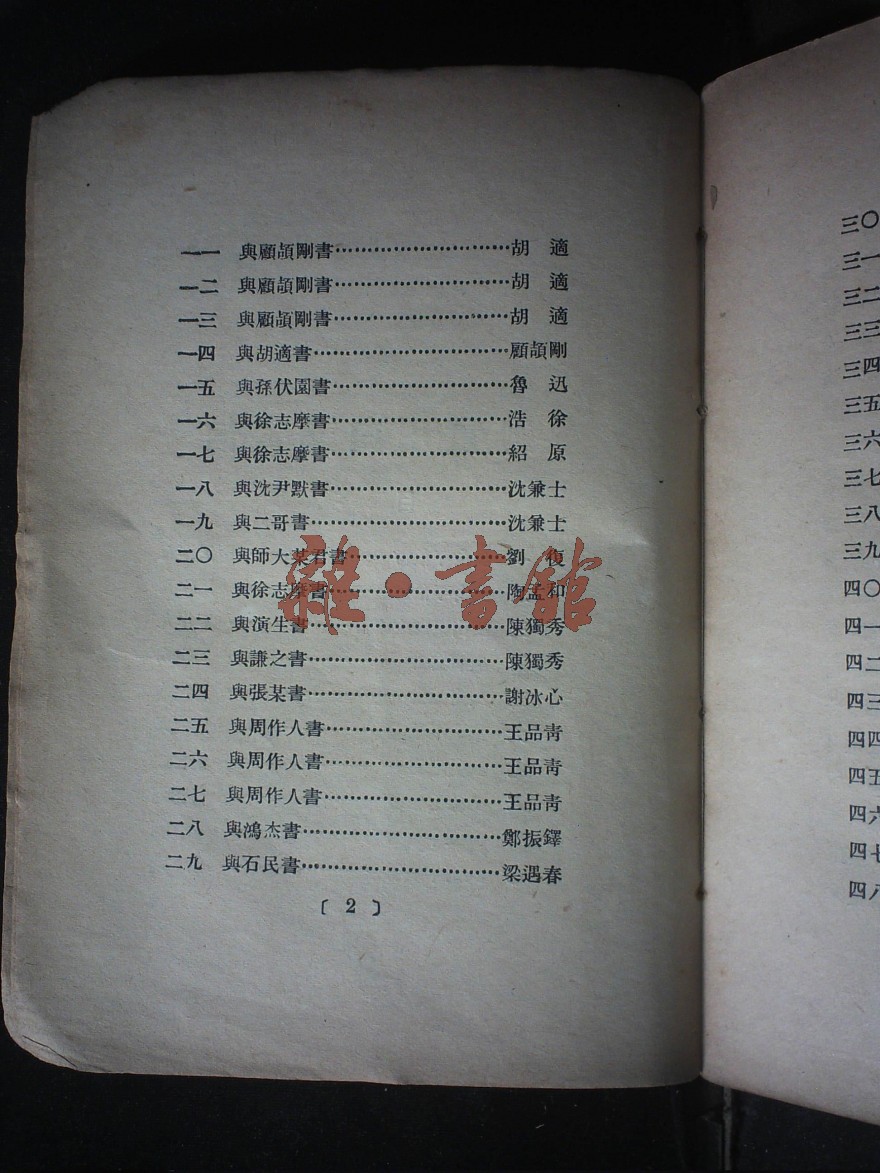 一一 與顧頡剛書……………………………胡 適
一二 與顧頡剛書……………………………胡 適
一三 與顧頡剛書……………………………胡 適
一四 與胡適書………………………………顧頡剛
一五 與孫伏園書……………………………魯 迅
一六 與徐志摩書……………………………浩 徐
一七 與徐志摩書……………………………紹 原
一八 與沈尹默書……………………………沈兼士
一九 與二哥書………………………………沈兼士
二〇 與師大某君書…………………………劉 復
二一 與徐志摩書……………………………陶孟和
二二 與演生書………………………………陳獨秀
二三 與謙之書………………………………陳獨秀
二四 與張某書………………………………謝冰心
二五 與周作人書……………………………王品靑
二六 與周作人書……………………………王品靑
二七 與周作人書……………………………王品靑
二八 與鴻杰書………………………………鄭振鐸
二九 與石民書………………………………梁遇春
〔 2 〕
雜·書館
三〇
三一
三二
三三
三四
三五
三六
三七
三八
三九
四〇
四一
四二
四三
四四
四五
四六
四七
四八